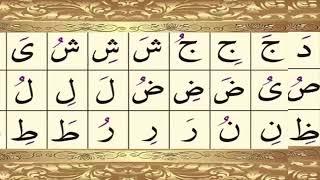 دَ جَ جِ جُ شَ شِ شُ یَ
صُ یُ ضَ ضِ ضُ لَ لِ لُ
ظِ نِ نُ رَ رِ رُ طَ طِ